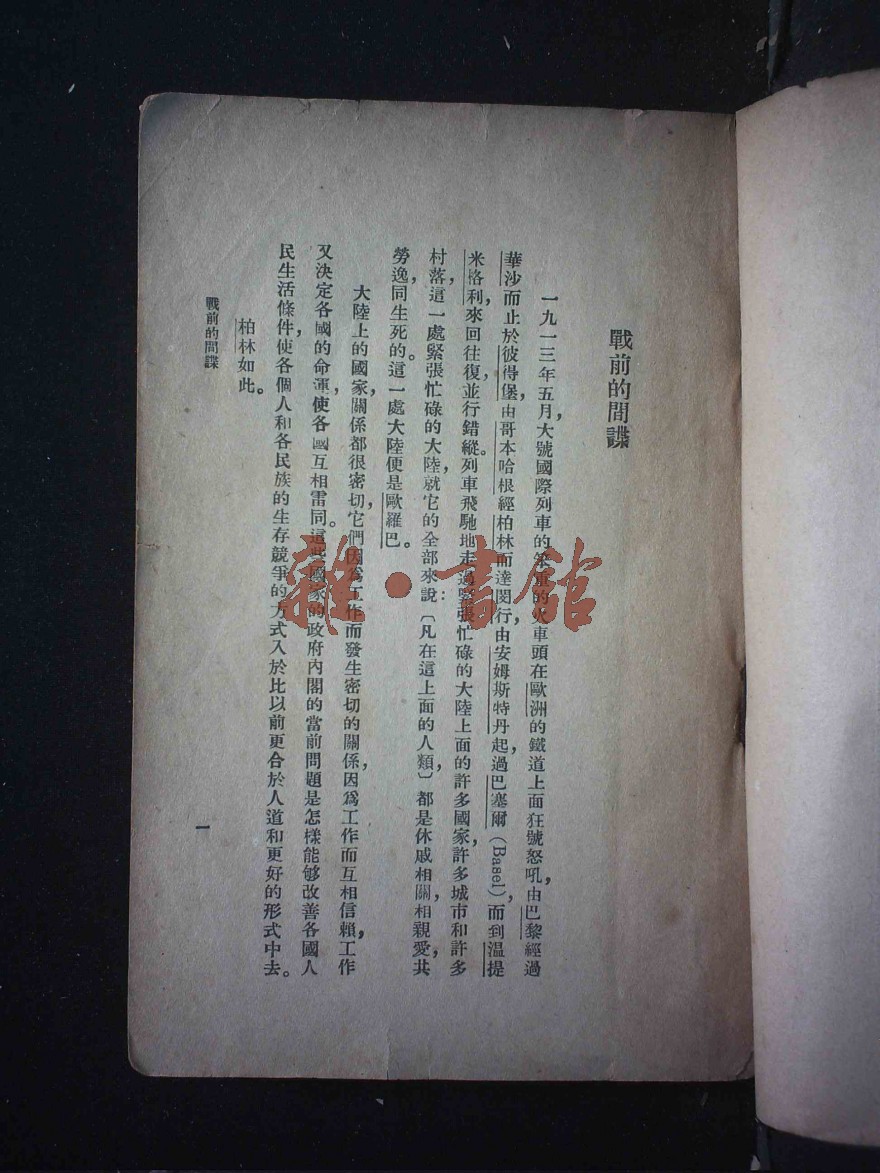 戰前的間諜
一九一三年五月,大號國際列車的笨重的火車頭在歐洲的鐵道上面狂號怒吼,由巴黎經過
華沙而止於彼得堡,由哥本哈根經柏林而達閔行,由安姆斯特丹起,過巴塞爾(Basel),而到溫提
米格利,來回往復,並行錯縱。列車飛馳地走過緊張忙碌的大陸上面的許多國家,許多城市和許多
村落,這一處緊張忙碌的大陸,就它的全部來說:〔凡在這上面的人類〕都是休戚相關,相親愛,共
勞逸,同生死的。這一處大陸便是歐羅巴。
大陸上的國家,關係都很密切,它們因爲工作而發生密切的關係,因爲工作而互相信賴,工作
又決定各國的命運,使各國互相雷同。這些國家的政府內閣的當前問題是怎樣能够改善各國人
民生活條件,使各個人和各民族的生存競爭的方式入於比以前更合於人道和更好的形式中去。
柏林如此。
戰前的間諜
一
雜·書館